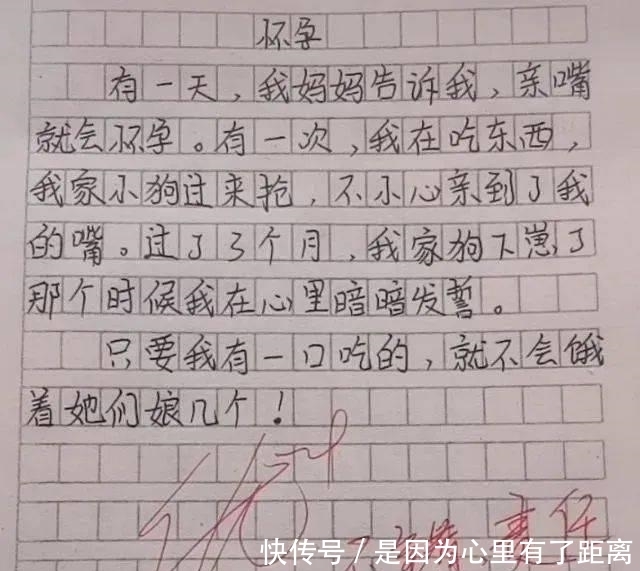 怀孕
有一天，我妈妈告诉我，亲嘴
就会怀孕。有一次，我在吃东西，
我家小狗过来抢，不小心亲到了我
的嘴。过了3个月，我家狗下崽了
那个时候我在心里暗暗发誓。
只要我有一口吃的，就不会饿
着她们娘几个！
责任
快传号/是因为心里有了距离